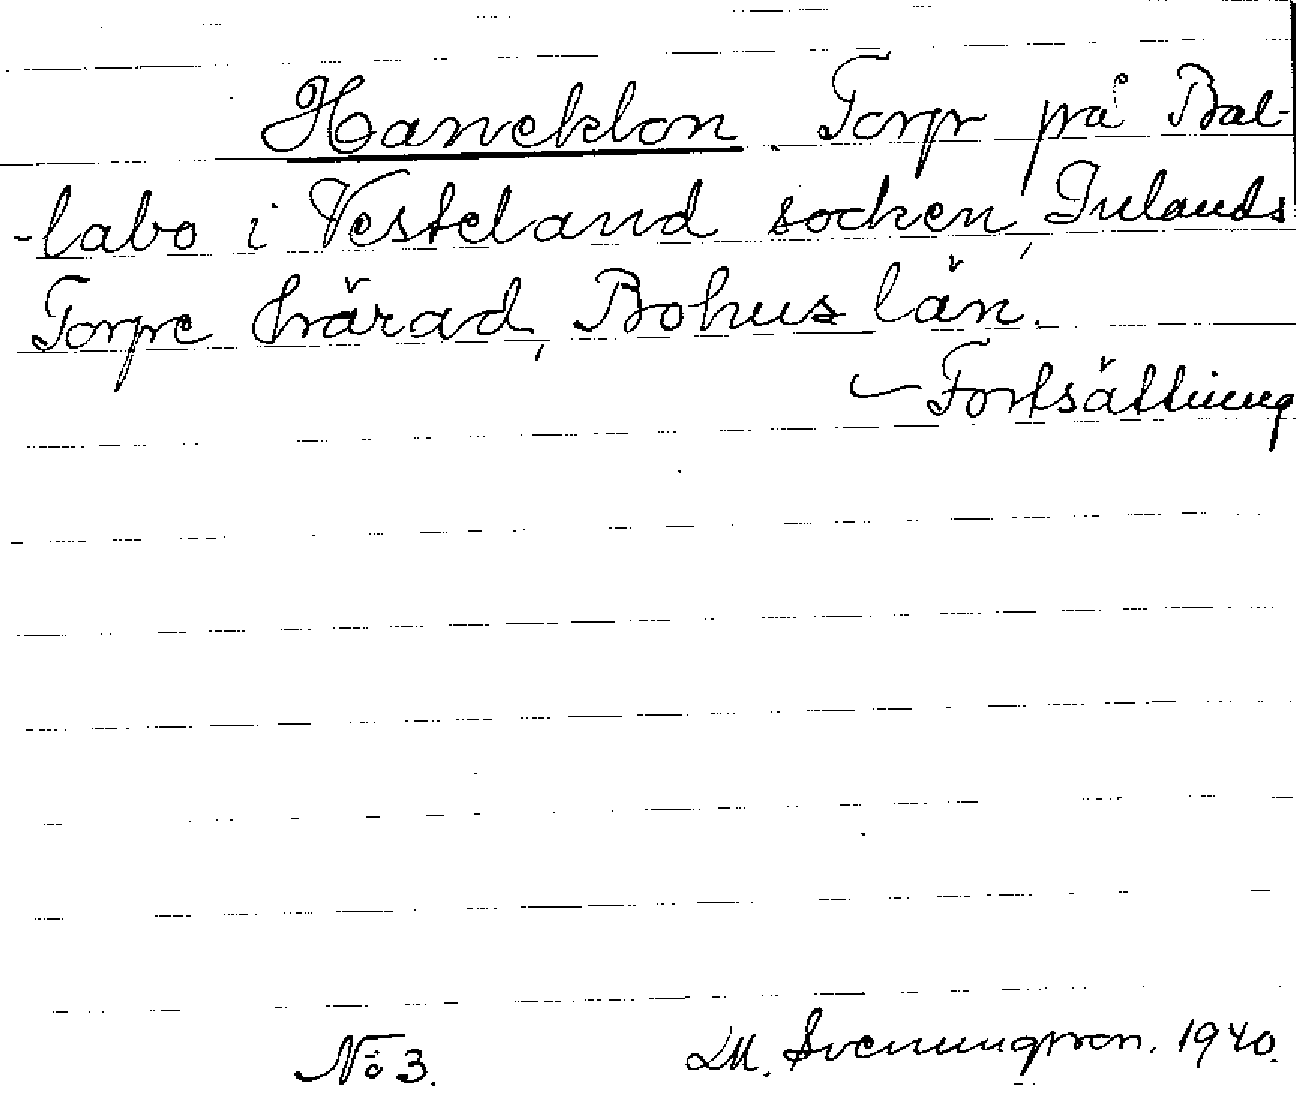 Haneklon. Torp på Bal-
-labo i Vesteland socken, Inlands
Torpe härad, Bohus län.
Fortsättning
No 3. M. Svenungsson. 1940.